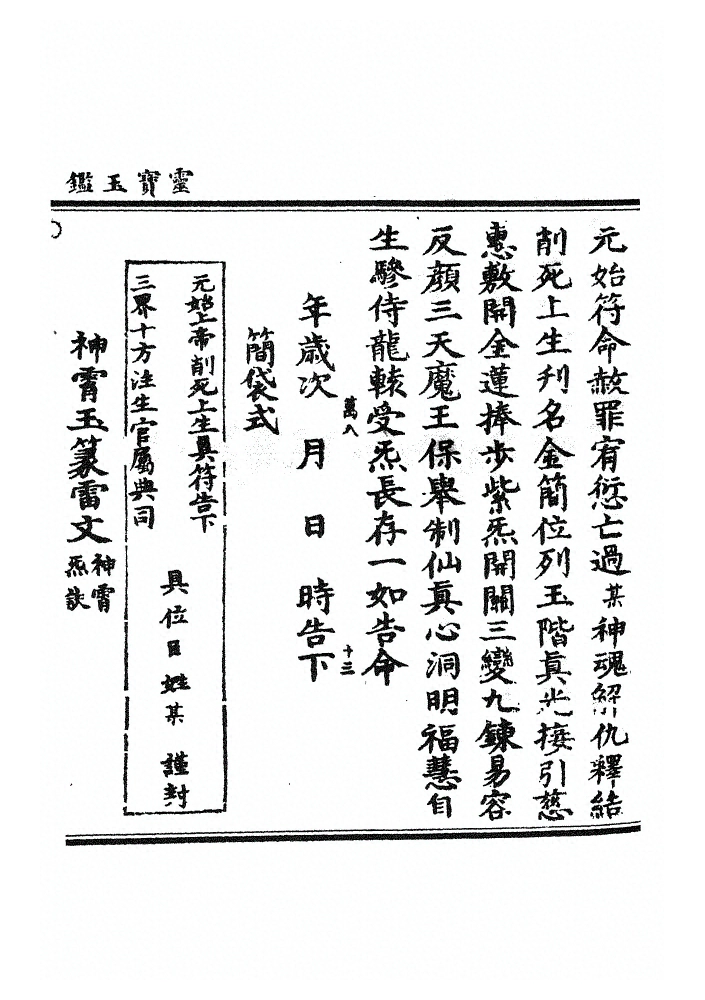 靈寶玉鑑
元始符命赦罪宥愆亡過某神魂解仇釋結
削死上生刋名金簡位列玉階真光接引慈
惠敷開金蓮捧步紫炁開關三變九鍊易容
反顔三天魔王保舉制仙真心洞明福慧自
生驂侍龍轅受炁長存一如告命
萬八
十三
年歲次 月 日 時告下
簡袋式
元始上帝削死上生真符告下
三界十方注生官屬典司
具位臣姓某 謹封
神霄玉篆雷文
神霄
炁訣